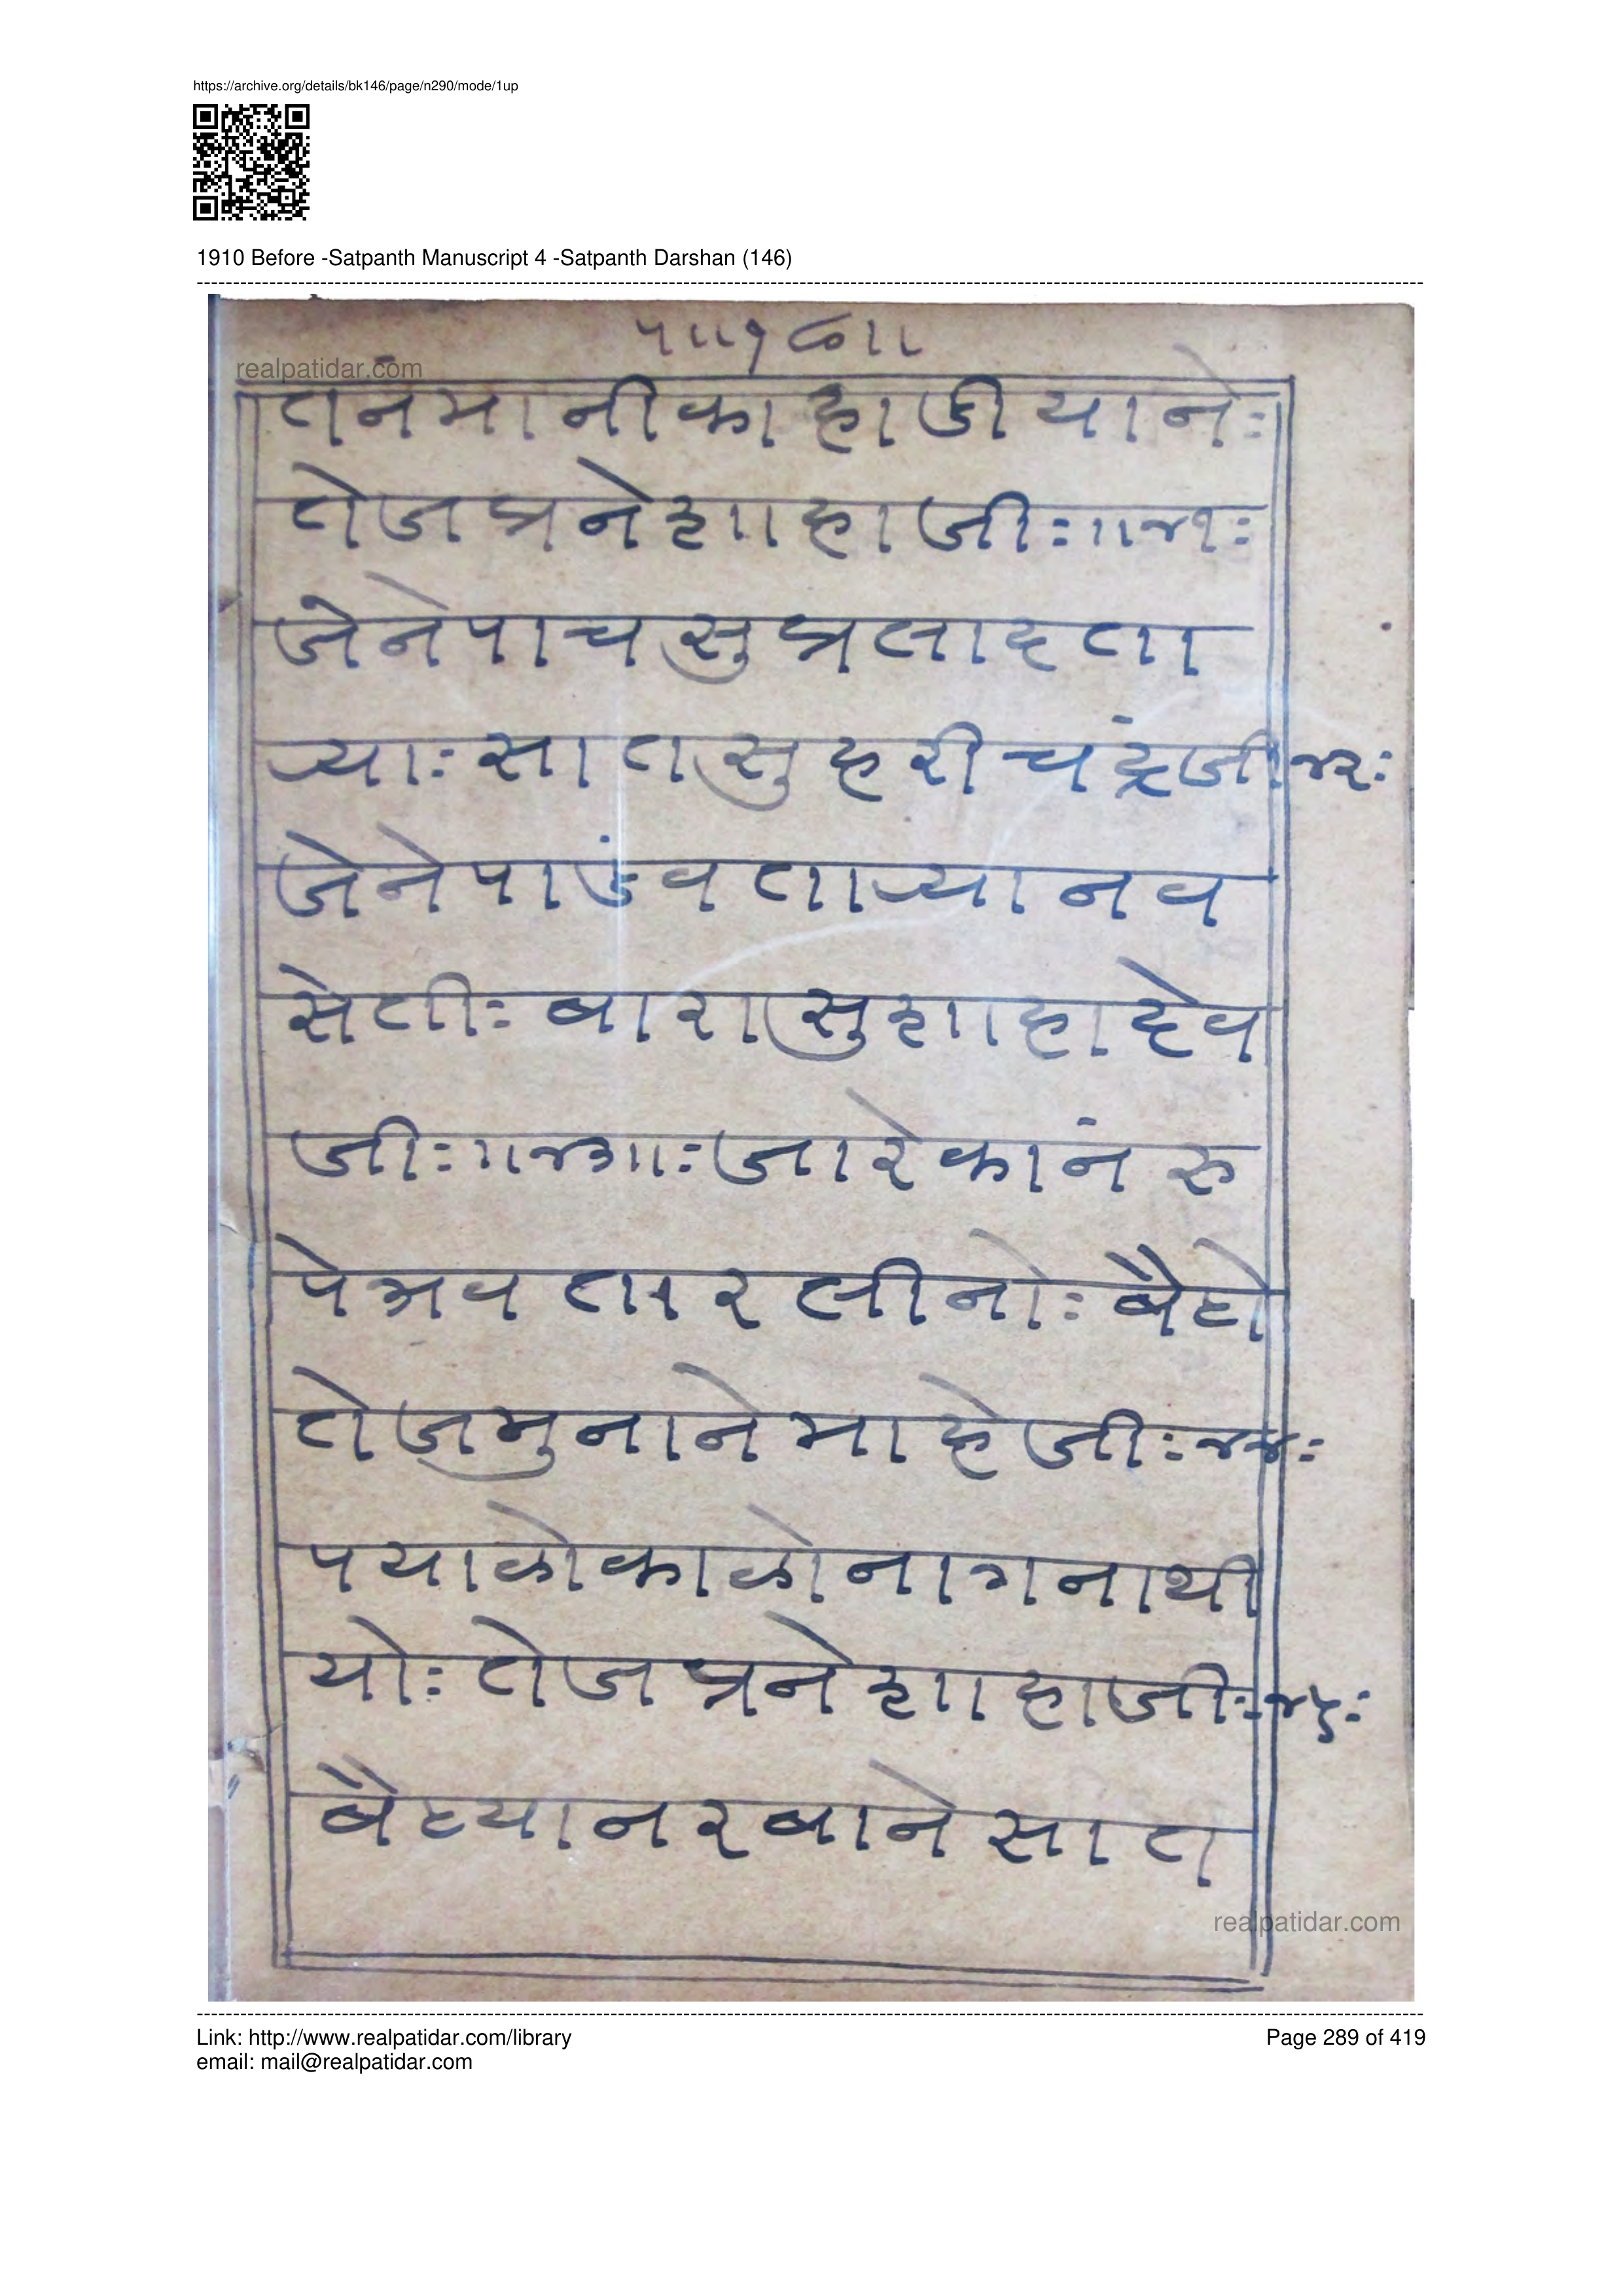 https://archive.org/details/bk146/page/n290/mode/1up
1910 Before -Satpanth Manuscript 4 -Satpanth Darshan (146)
realpatidar.com
तनंमानीकाहाडीयाने:
तेजप्रनेहााहाजी:॥४१:
जेनेपाचसुप्रलाहता
र्‍या:सातसुहरीचंद्रजी४२:
जेनेपाडंवतार्‍यानव
सेती:बारासुहााहादेव
जी:॥४३॥:जारेकांनंरु
पेअवतारलीनो:बैठो
तेजमुनानेमाहेजी:४४:
पयाळोकाळोनागनाथी
यो:तेजप्रनेहााहाजी:४५:
बैठ्यानरबानेसात
realpatidar.com
Link: http://www.realpatidar.com/library
email: mail@realpatidar.com
Page 289 of 419